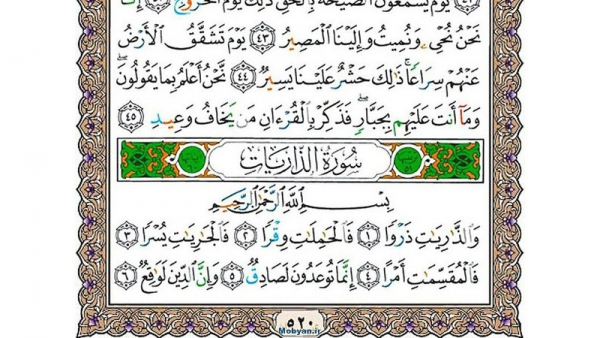 يَوْمَ يَسْمَعُونَ ٱلصَّيْحَةَ بِٱلْحَقِّ ذَٰلِكَ يَوْمُ ٱلْخُرُوجِ ٤٢ إِنَّا
نَحْنُ نُحْىِۦ وَنُمِيتُ وَإِلَيْنَا ٱلْمَصِيرُ ٤٣ يَوْمَ تَشَقَّقُ ٱلْأَرْضُ
عَنْهُمْ سِرَاعًا ۚ ذَٰلِكَ حَشْرٌ عَلَيْنَا يَسِيرٌ ٤٤ نَّحْنُ أَعْلَمُ بِمَا يَقُولُونَ ۖ
وَمَآ أَنتَ عَلَيْهِم بِجَبَّارٍ ۖ فَذَكِّرْ بِٱلْقُرْءَانِ مَن يَخَافُ وَعِيدِ ٤٥
سُورَةُ الذَّارِيَاتِ
بِسْمِ ٱللَّهِ ٱلرَّحْمَٰنِ ٱلرَّحِيمِ
وَٱلذَّٰرِيَٰتِ ذَرْوًا ١ فَٱلْحَٰمِلَٰتِ وِقْرًا ٢ فَٱلْجَٰرِيَٰتِ يُسْرًا ٣
فَٱلْمُقَسِّمَٰتِ أَمْرًا ٤ إِنَّمَا تُوعَدُونَ لَصَادِقٌ ٥ وَإِنَّ ٱلدِّينَ لَوَٰقِعٌ ٦
٥٢٠
Mobyan.ir